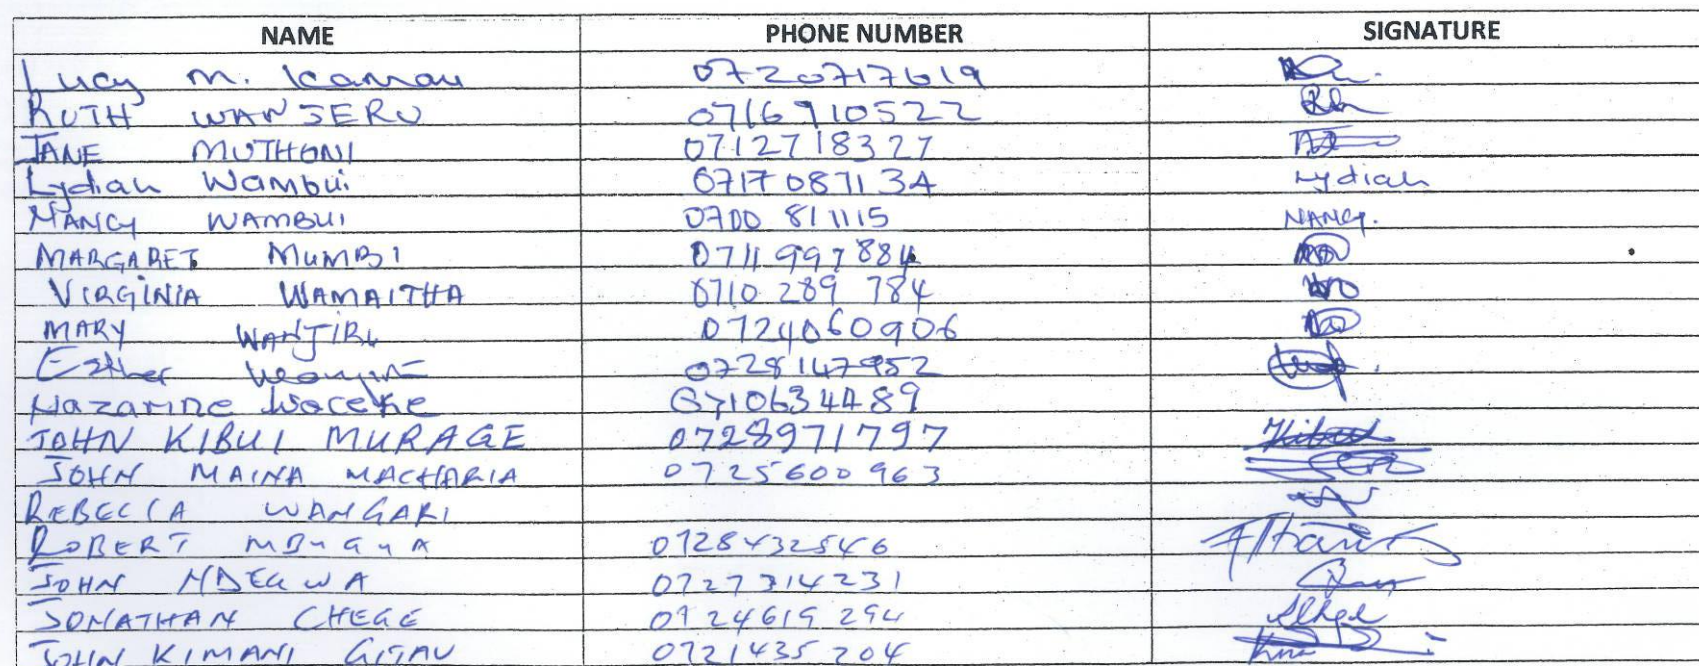 NAME PHONE NUMBER SIGNATURE
Lucy M. Kamau 0720717619
RUTH WANJERU 0716910522
JANE MUTHONI 0712718327
Lydiah Wambui 0717087134 Lydiah
NANCY WAMBUI 0700 811115 NANCY.
MARGARET MUMBI 0711 997884
VIRGINIA WAMAITHA 0710 289 784
MARY WANJIRU 0724060906
Esther 0728147952
Nazarine Waceke 0710634489
JOHN KIBUI MURAGE 0728971797
JOHN MAINA MACHARIA 0725600963
REBECCA WANGARI
ROBERT MBUGUA 0728432546
JOHN NDEGWA 0727314231
JONATHAN CHEGE 0724619294
JOHN KIMANI GITAU 0721435204